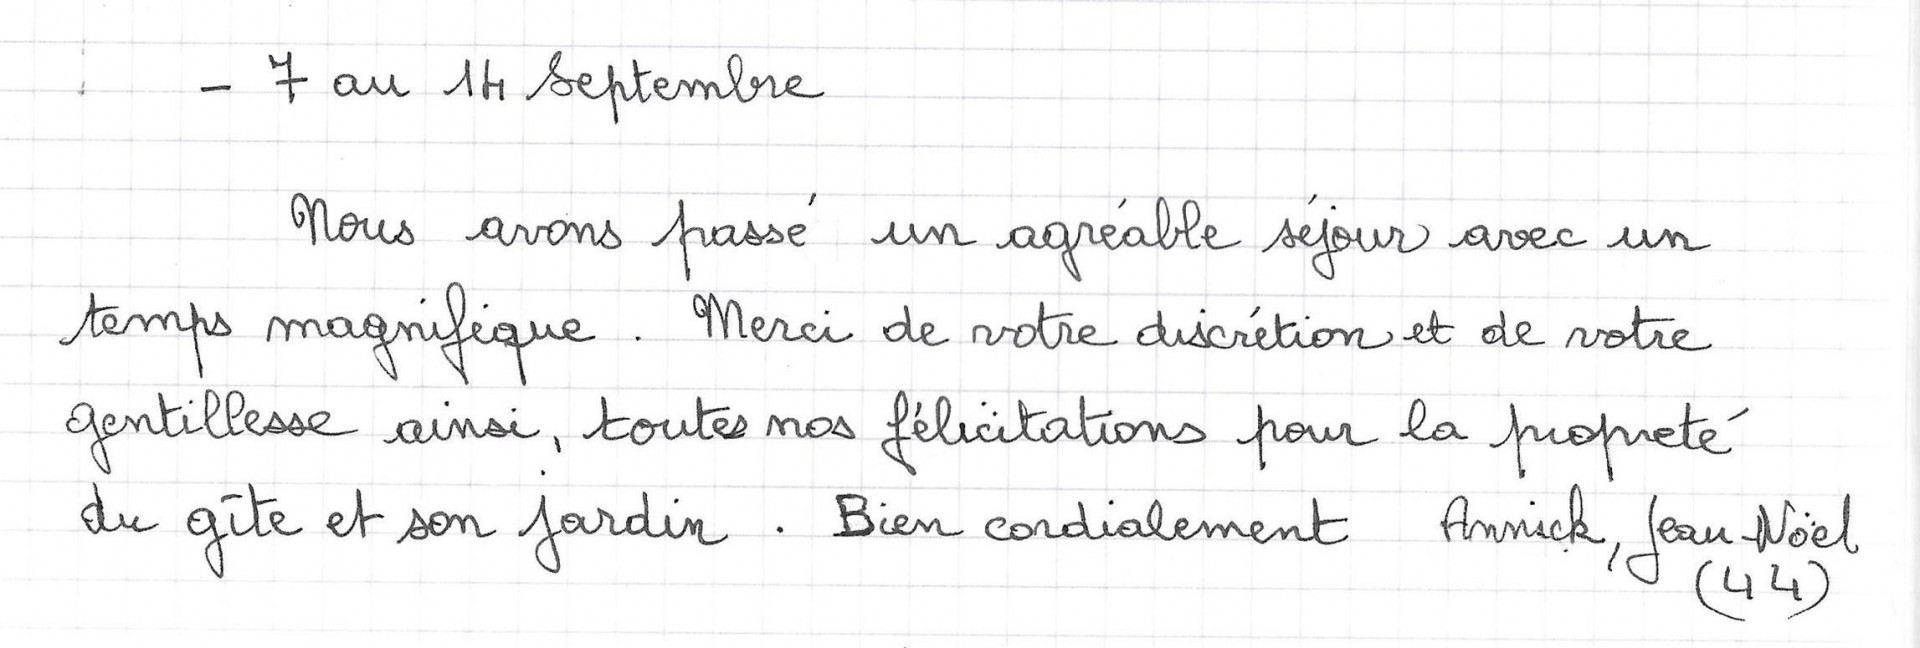 - 7 au 14 Septembre
Nous avons passé un agréable séjour avec un
temps magnifique. Merci de votre discrétion et de votre
gentillesse ainsi, toutes nos félicitations pour la propreté
du gîte et son jardin. Bien cordialement Annick, Jean-Noël
(44)